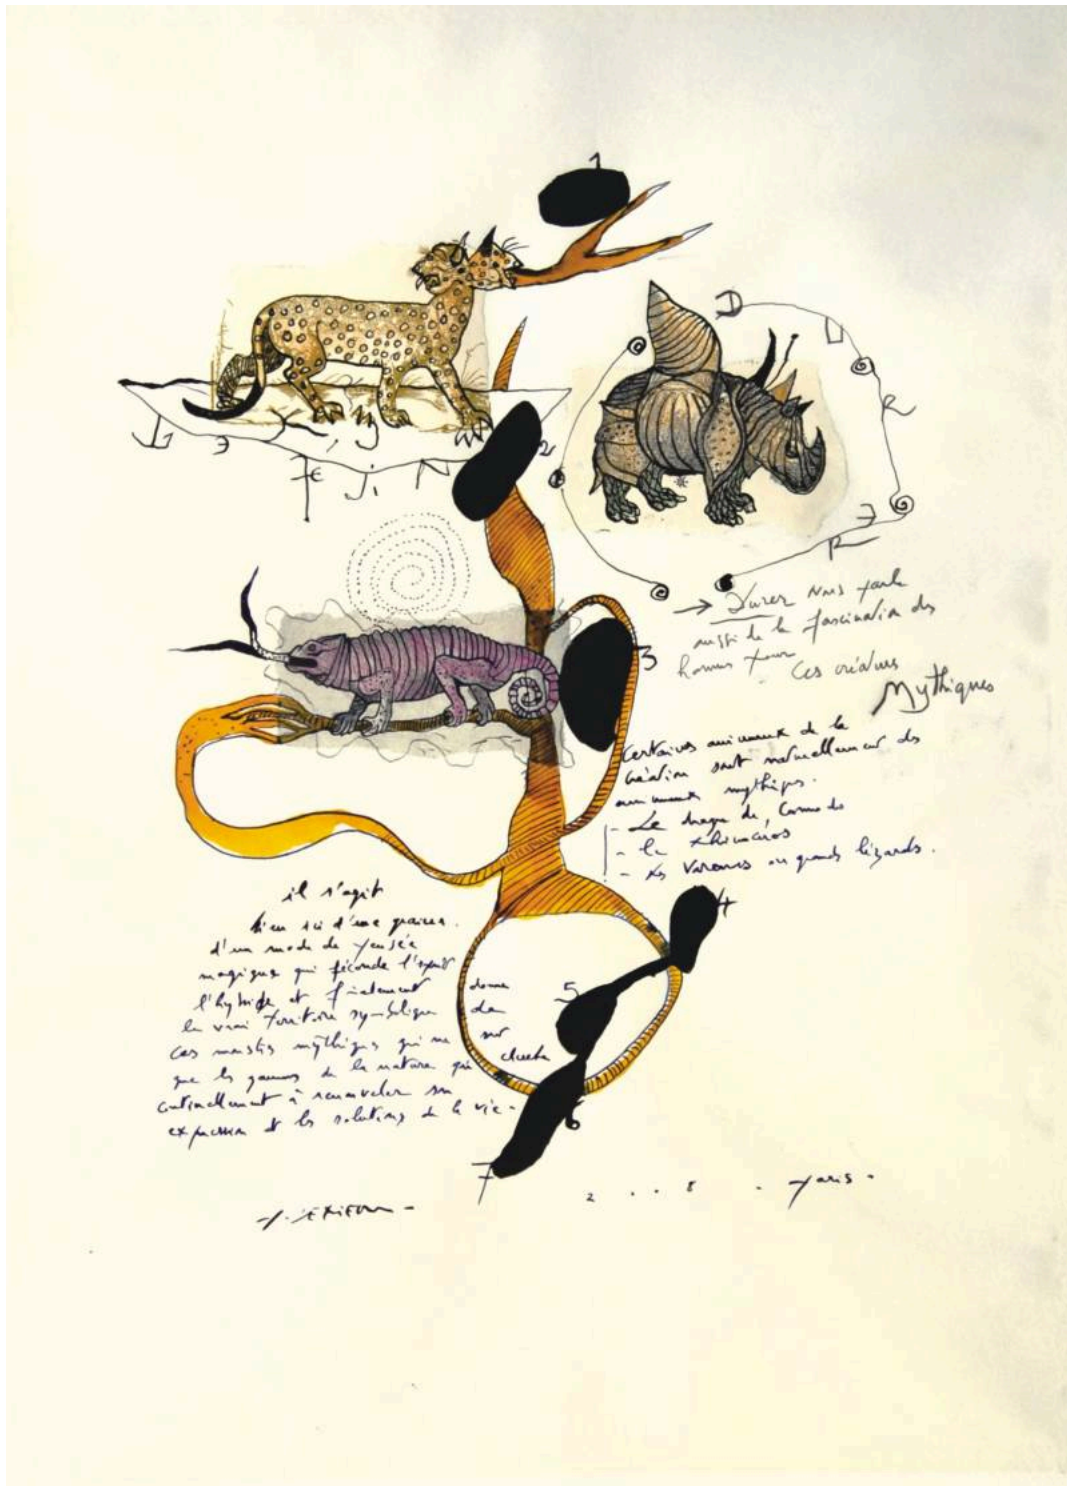 1
D
U
R
E
R
2
→ Durer nous parle
aussi de la fascination des
hommes pour ces créatures
Mythiques
3
Certaines animaux de la
création sont naturellement des
animaux mythiques.
- Le dragon de Comodo
- le rhinocéros
- les varans ou grands lézards.
4
il s'agit
bien ici d'une graine
d'un mode de pensée
magique qui féconde l'esprit
l'hybride et finalement donne
le vrai territoire symbolique de
ces monstres mythiques qui ne sur
que les de la nature qui cherche
continuellement à renouveler son
expression et les solutions de la vie.
5
6
7
2 . . 8 - Paris -